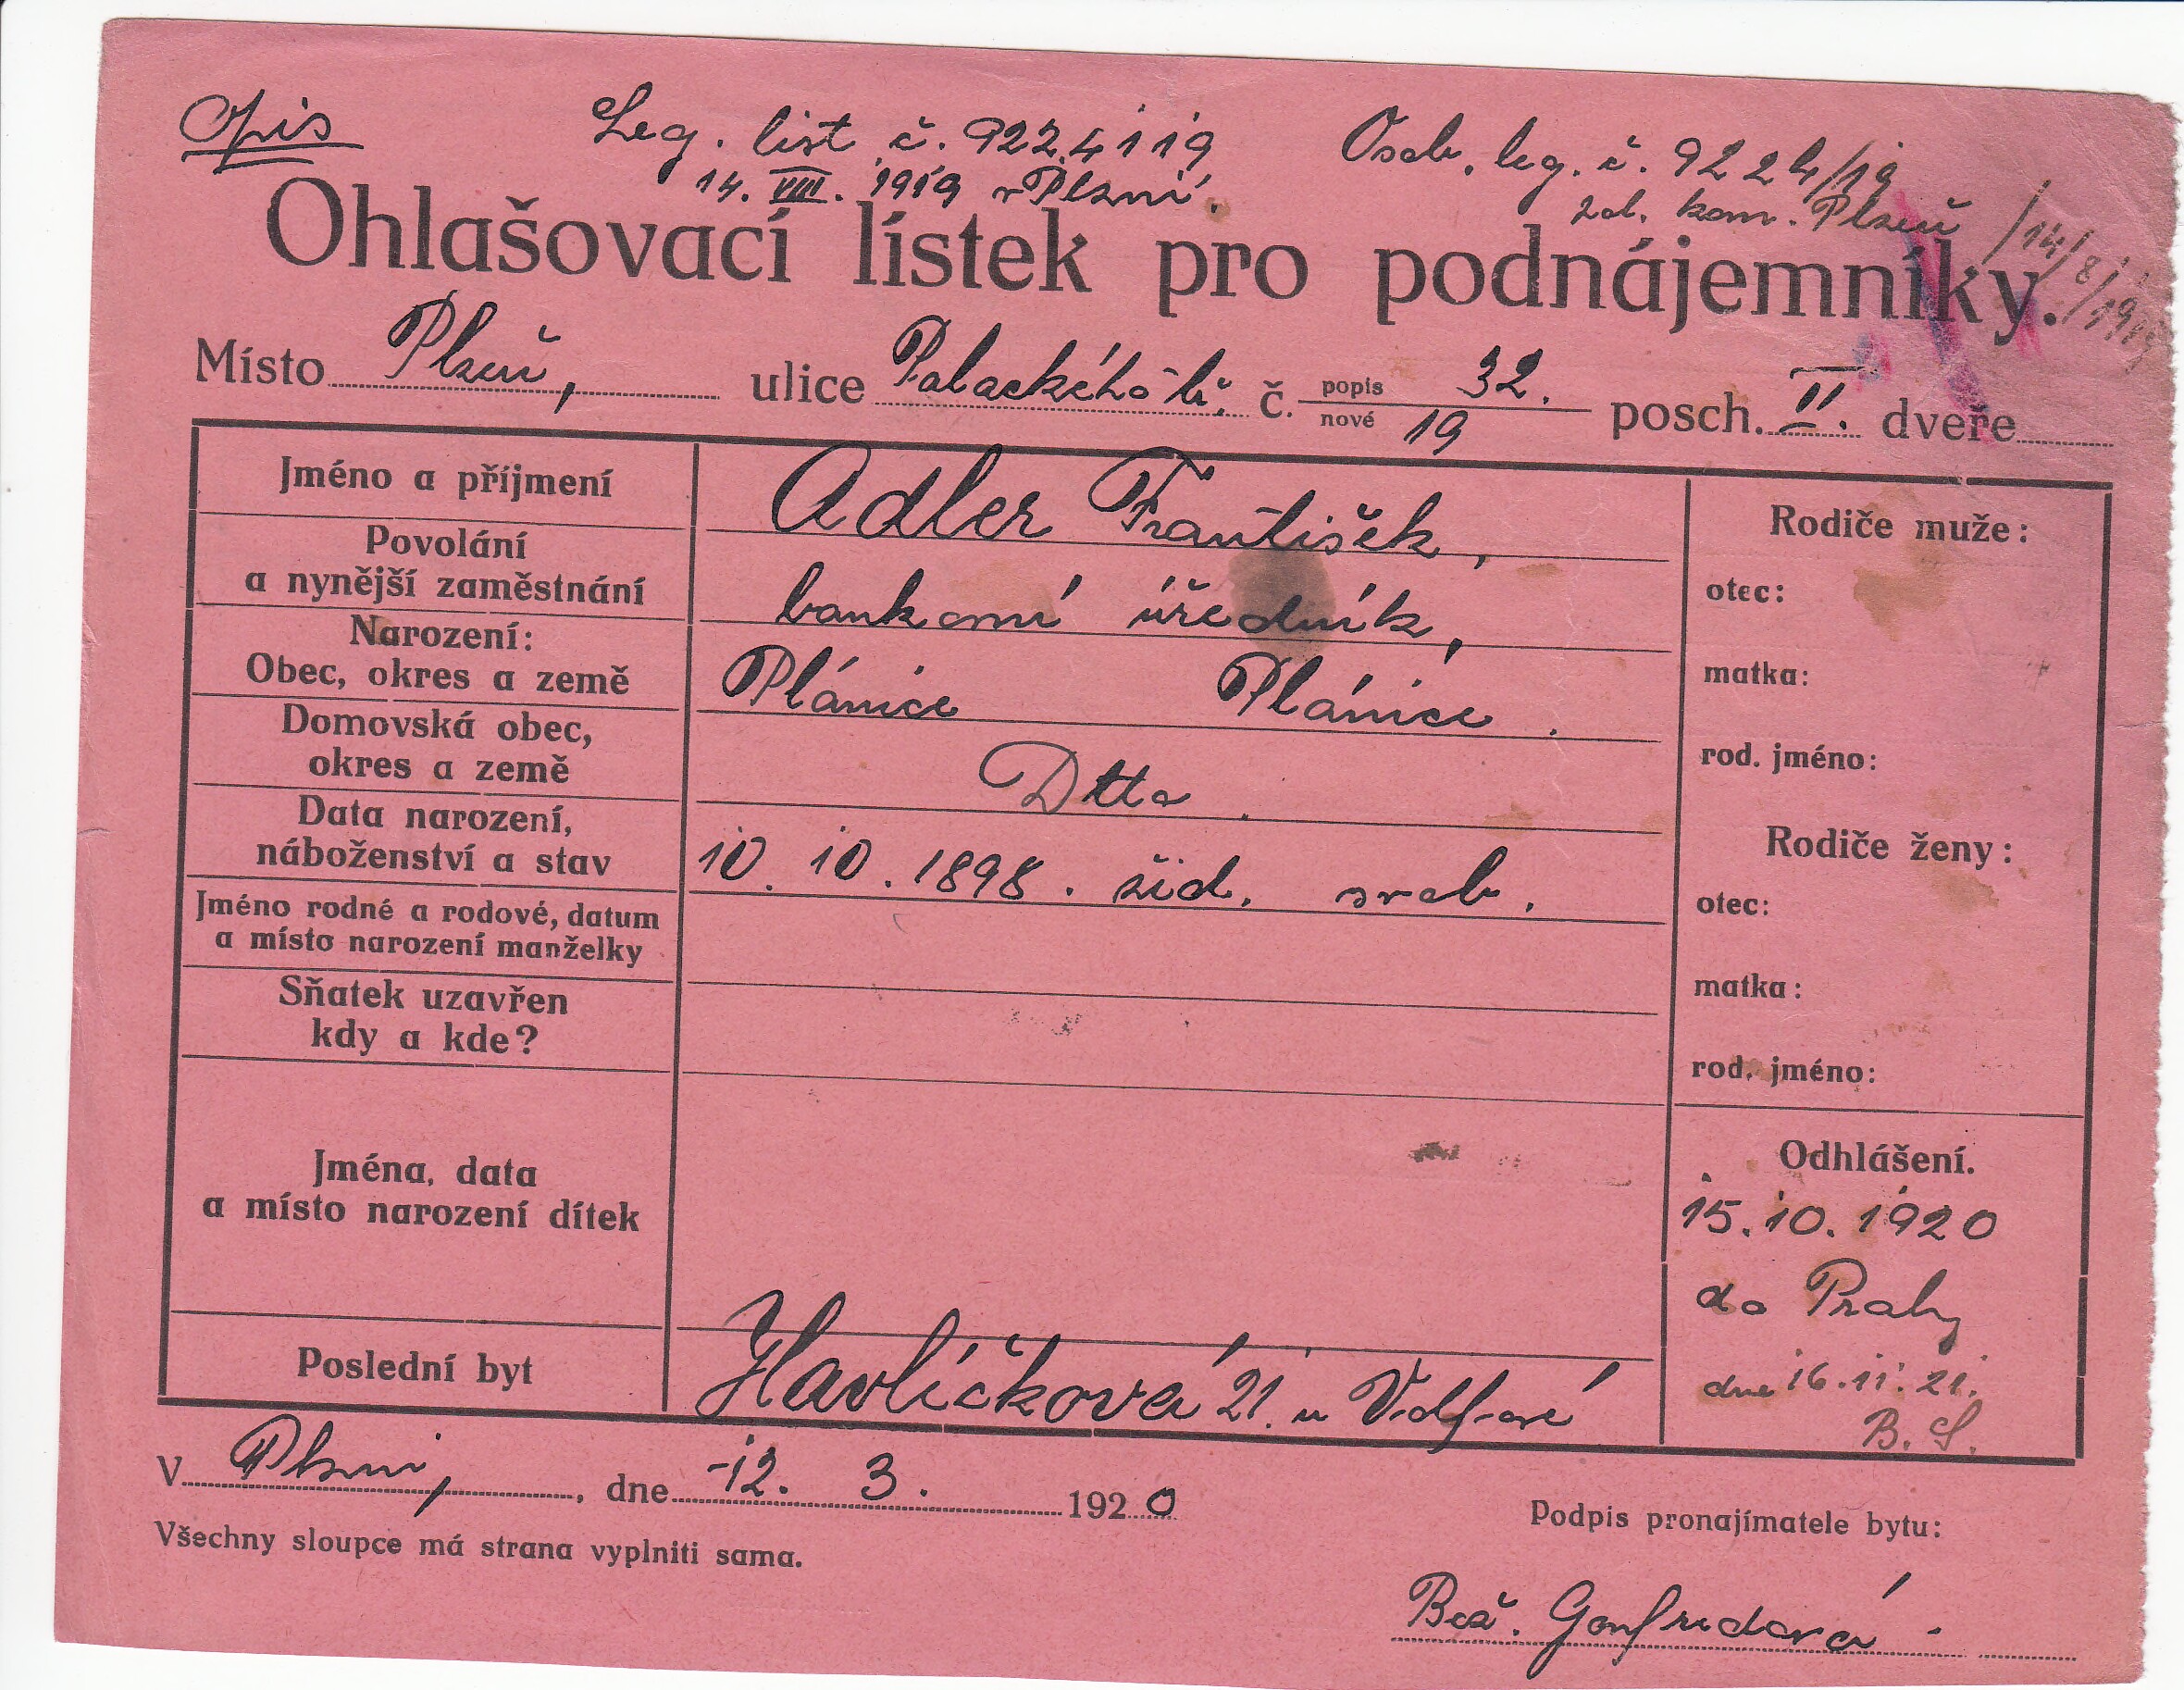 Opis
Leg. list č. 9224119 Osob. leg. č. 9224/19
14. VIII. 1919 v Plzni. zad. kom. Plzeň /14/8/1919
Ohlašovací lístek pro podnájemníky.
Místo Plzeň, ulice Palackého tř. č. popis 32. posch. II. dveře
nové 19
Jméno a příjmení Adler František,
Povolání
a nynější zaměstnání bankovní úředník,
Narození:
Obec, okres a země Plánice Plánice.
Domovská obec,
okres a země Dtto.
Data narození,
náboženství a stav 10. 10. 1898. žid. svob.
Jméno rodné a rodové, datum
a místo narození manželky
Sňatek uzavřen
kdy a kde?
Jména, data
a místo narození dítek
Poslední byt Havlíčkova 21. u
Rodiče muže:
otec:
matka:
rod. jméno:
Rodiče ženy:
otec:
matka:
rod. jméno:
Odhlášení.
15. 10. 1920
do Prahy
dne 16. 11. 21.
B. S.
V Plzni, dne 12. 3. 1920
Všechny sloupce má strana vyplniti sama.
Podpis pronajímatele bytu: